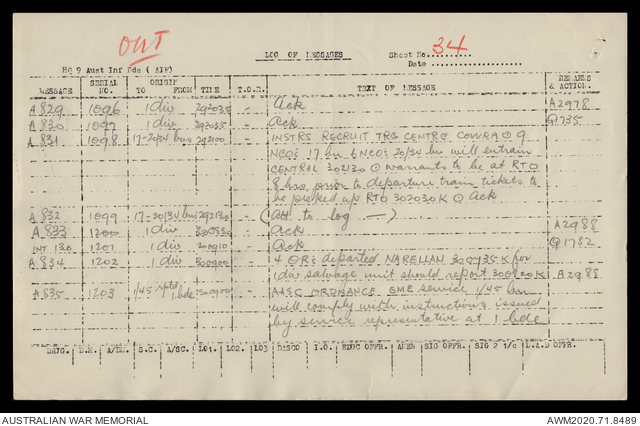 OUT
LOG OF MESSAGES
Sheet No. 34
Date
HQ 9 Aust Inf Bde (AIF)
MESSAGE SERIAL NO. ORIGIN TO FROM TIME T.O.R. TEXT OF MESSAGE REMARKS & ACTION.
A 829 1096 1 div 292035 - Ack A2978
A 830 1097 1 div 292035 - Ack Q 735
A 831 1098 17-20/34 bns 292100 - INSTRS RECRUIT TRG CENTRE COWRA ⊙ 9
NCOs 17 bn 6 NCOs 20/34 bn will entrain
CENTRAL 302130 ⊙ warrants to be at RTO
8 hrs prior to departure train tickets to
be picked up RTO 302030K ⊙ Ack
A 832 1099 17-20/34 bns 292130 - (Att to log —)
A 833 1200 1 div - Ack A2988
INT 130 1201 1 div 300910 - Ack Q1782
A 834 1202 1 div 300900 - 4 ORs departed NARELLAN 300735K for
1 div salvage unit should report 300920K A2988
A 835 1203 1/45 1 bde 300900 - AASC ORDNANCE EME service 1/45 bn
will comply with instructions issued
by service representative at 1 bde
B.M. S.C. A/SC. LO1. LO2. LO3 DASCO I.O. EDUC OFFR. SIG OFFR. SIG 2 I/c L.A.D OFFR.
AUSTRALIAN WAR MEMORIAL
AWM2020.71.8489